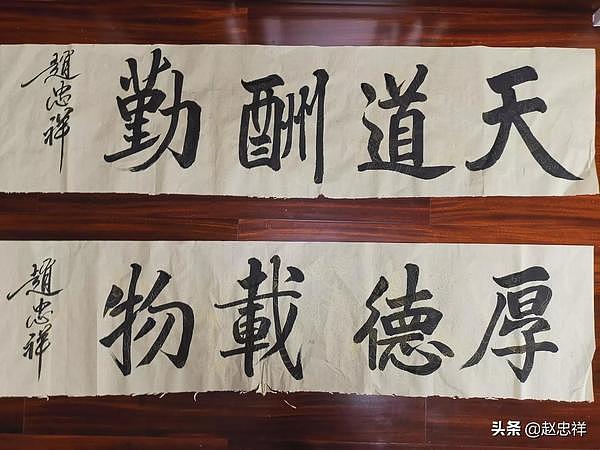 天道酬勤
趙忠祥
厚德載物
趙忠祥
头条 @赵忠祥